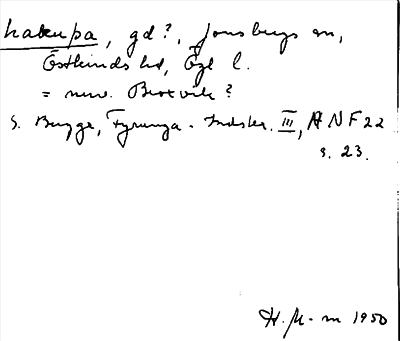 hakuþa, gd?, Jonsbergs sn,
Östkinds hd, Ögl l.
= nuv. Brotvik?
S. Bugge, Fyrunga-Indskr. III, ANF 22
s. 23.
H. M-m 1950